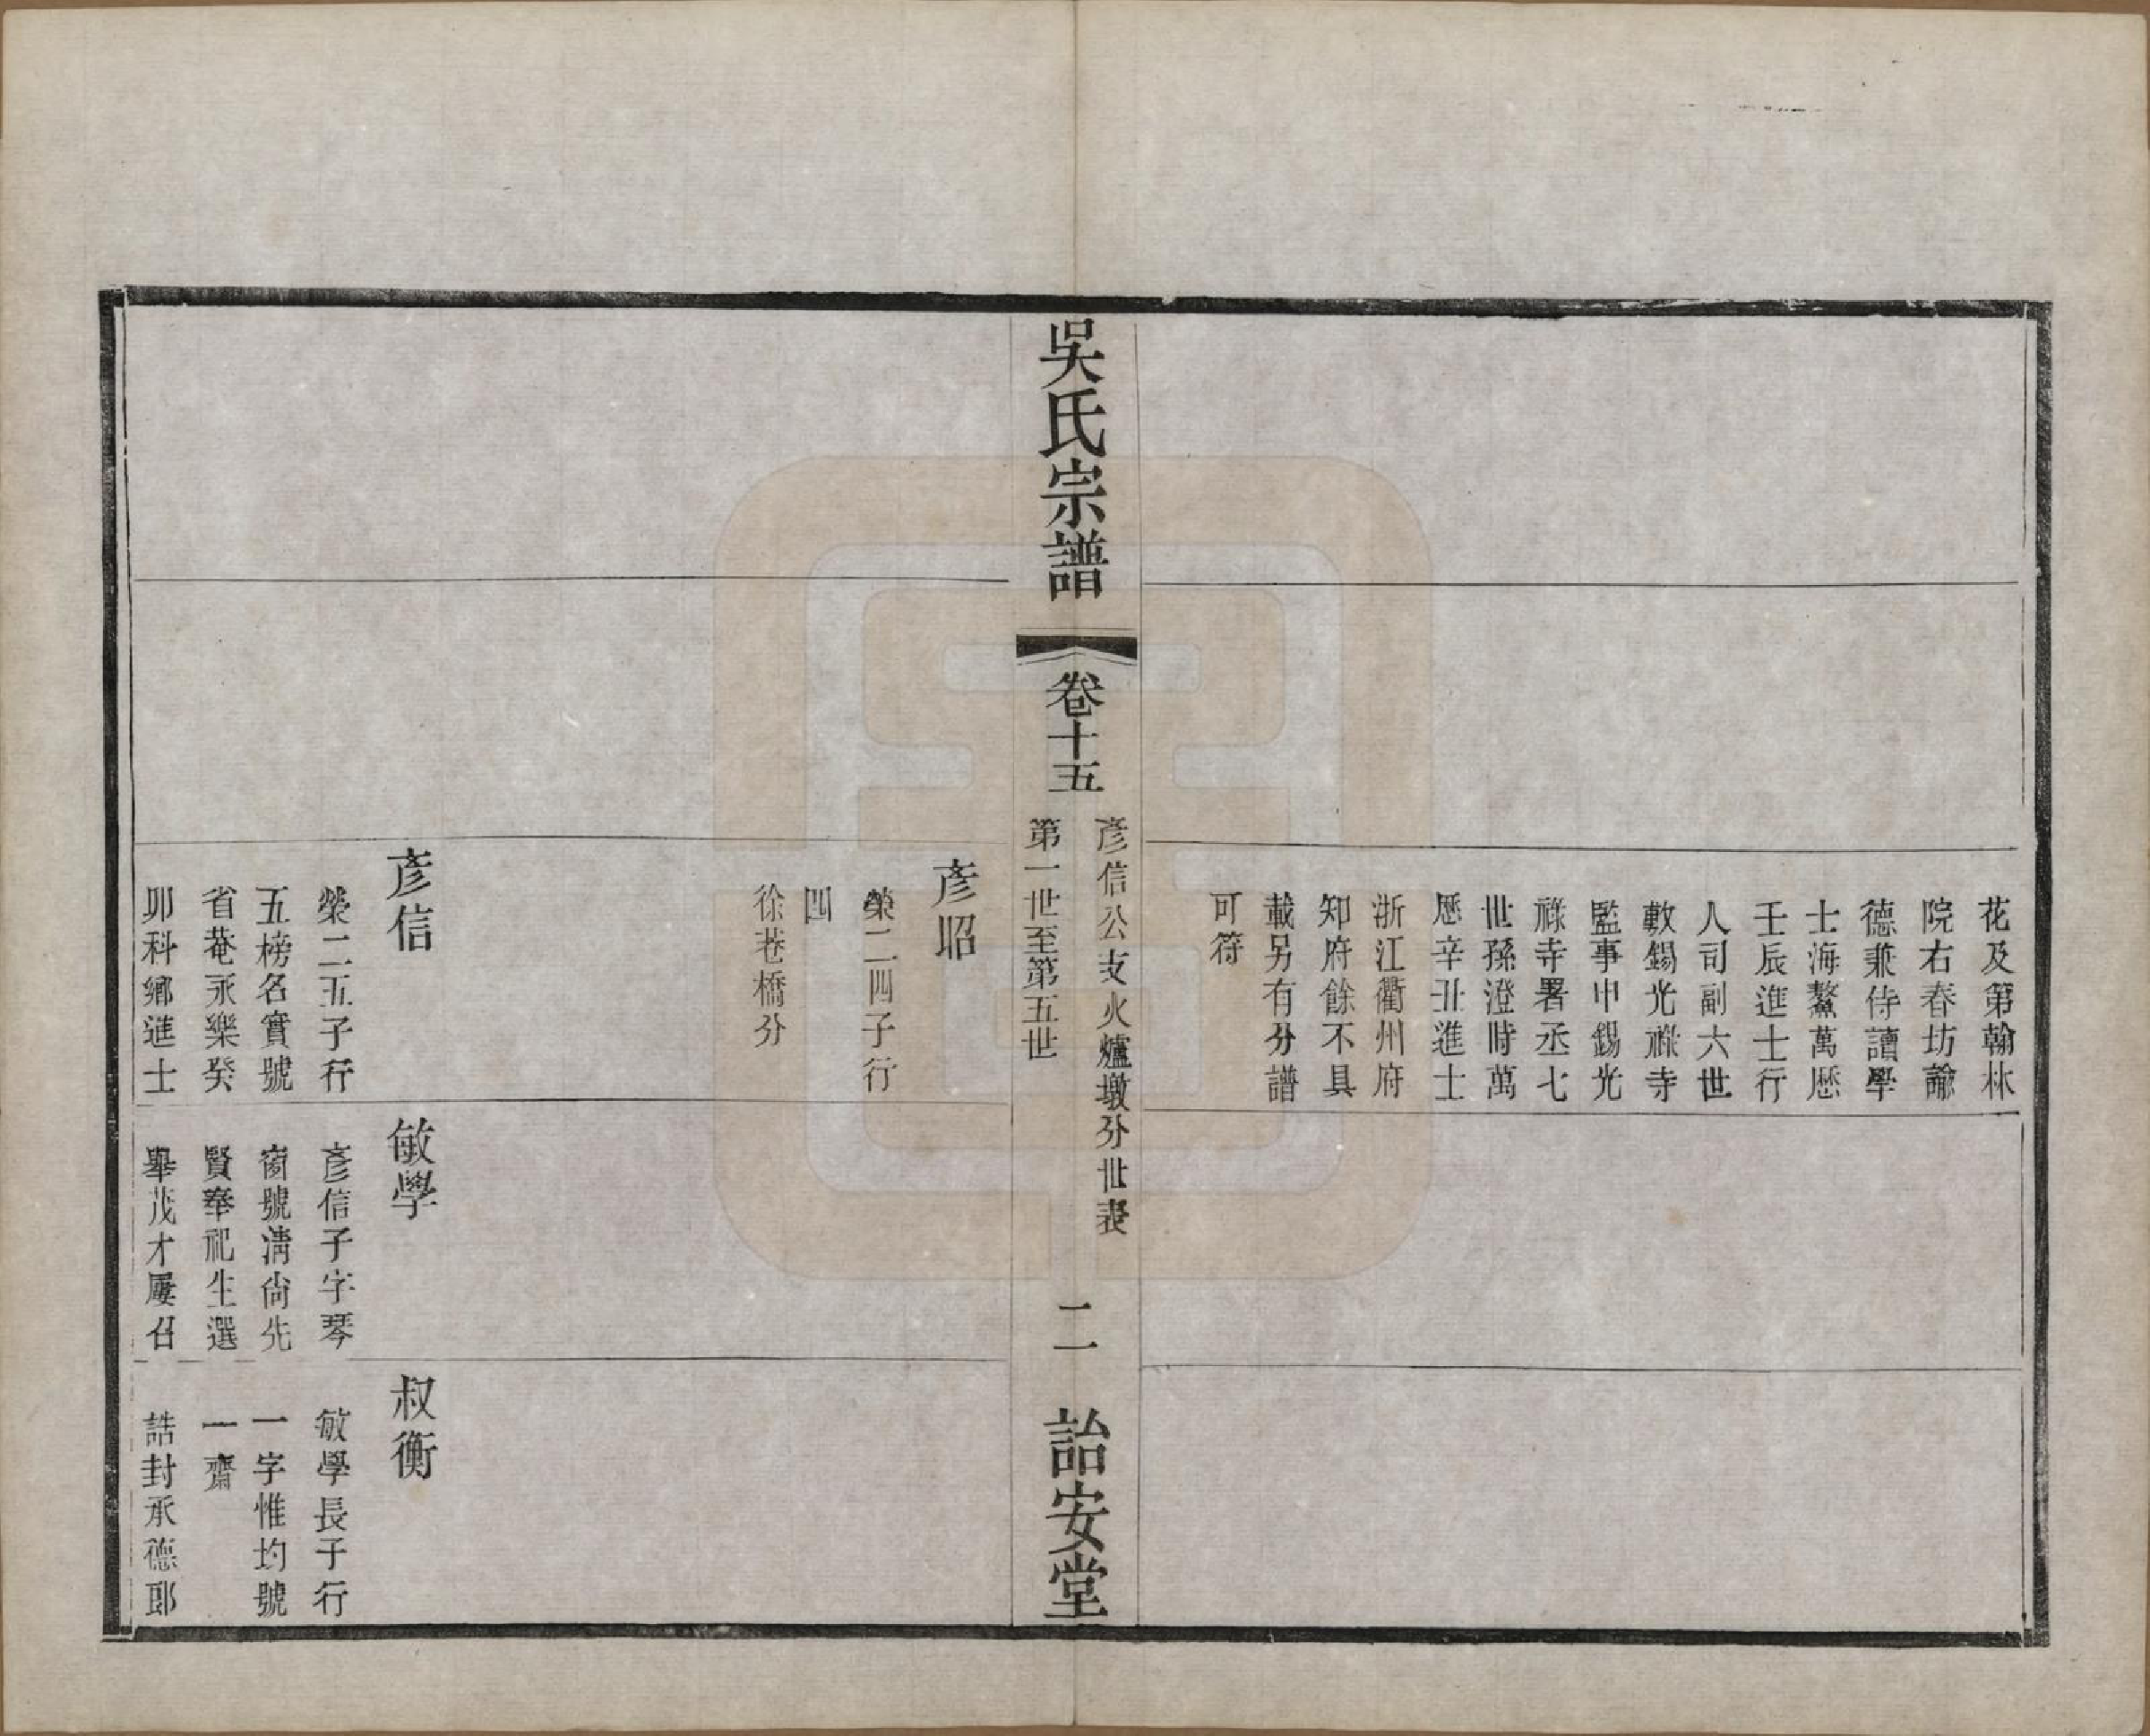 花及第翰林
院右春坊諭
德兼侍讀學
士海鰲萬厯
壬辰進士行
人司副六世
敷錫光祿寺
監事中錫光
祿寺署丞七
世孫澄時萬
厯辛丑進士
浙江衢州府
知府餘不具
載另有分譜
可符
吳氏宗譜
卷十五
彥信公支火爐墩分世表
第一世至第五世
二
詒安堂
彥昭
榮二四子行
四
徐巷橋分
彥信
榮二五子行
五榜名實號
省菴永樂癸
卯科鄉進士
敏學
彥信子字琴
窗號淸尙先
賢奉祀生選
舉茂才屢召
叔衡
敏學長子行
一字惟均號
一齋
誥封承德郎